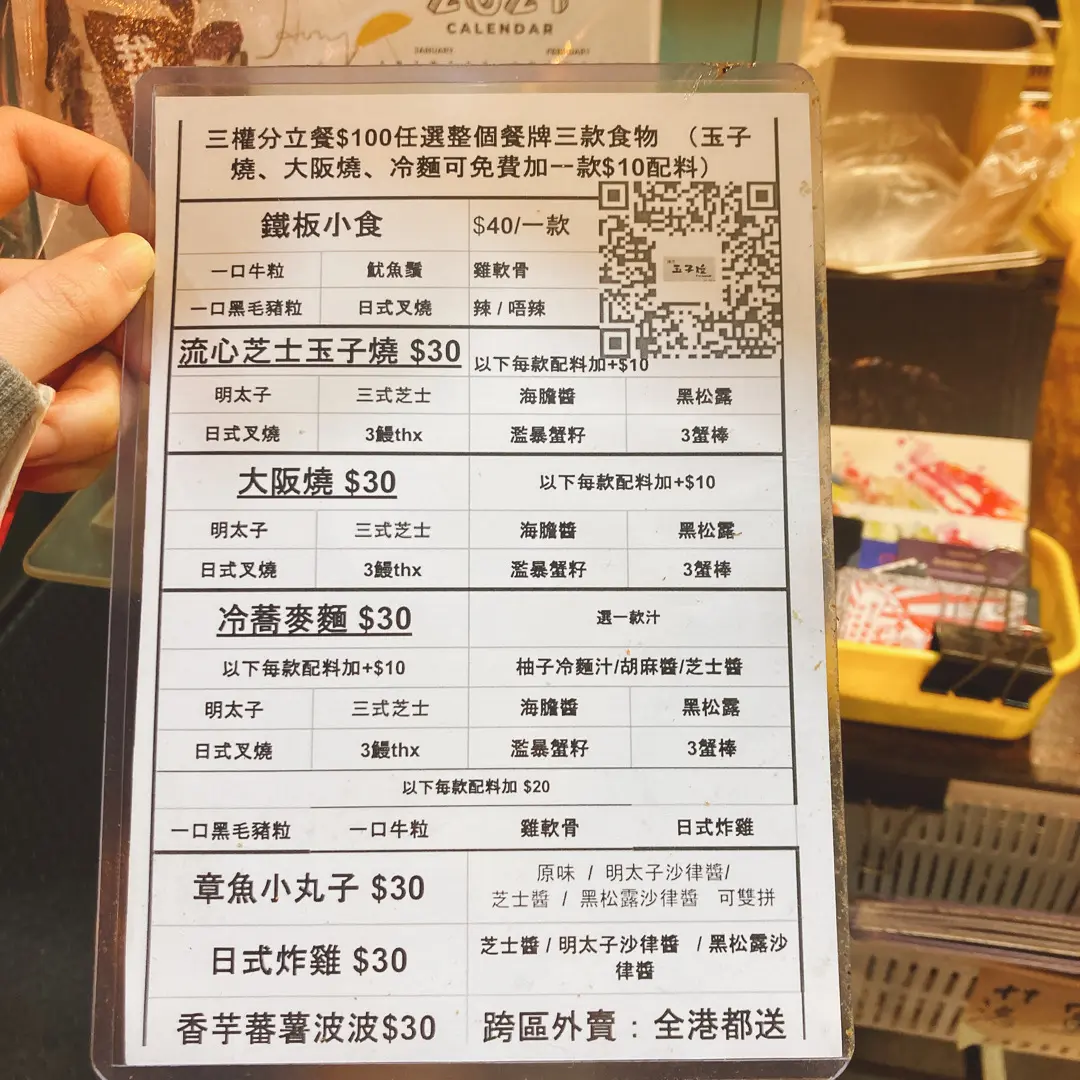 我
CALENDAR
JANUARY
FEBRUARY
三權分立餐$100任選整個餐牌三款食物 （玉子
燒、大阪燒、冷麵可免費加一款$10配料）
鐵板小食 $40/一款
玉子燒
一口牛粒 魷魚鬚 雞軟骨
一口黑毛豬粒 日式叉燒 辣 / 唔辣
流心芝士玉子燒 $30 以下每款配料加+$10
明太子 三式芝士 海膽醬 黑松露
日式叉燒 3鰻thx 濫暴蟹籽 3蟹棒
大阪燒 $30 以下每款配料加+$10
明太子 三式芝士 海膽醬 黑松露
日式叉燒 3鰻thx 濫暴蟹籽 3蟹棒
冷蕎麥麵 $30 選一款汁
以下每款配料加+$10 柚子冷麵汁/胡麻醬/芝士醬
明太子 三式芝士 海膽醬 黑松露
日式叉燒 3鰻thx 濫暴蟹籽 3蟹棒
以下每款配料加 $20
一口黑毛豬粒 一口牛粒 雞軟骨 日式炸雞
章魚小丸子 $30
原味 / 明太子沙律醬/
芝士醬 / 黑松露沙律醬 可雙拼
日式炸雞 $30
芝士醬 / 明太子沙律醬 / 黑松露沙
律醬
香芋蕃薯波波$30 跨區外賣：全港都送